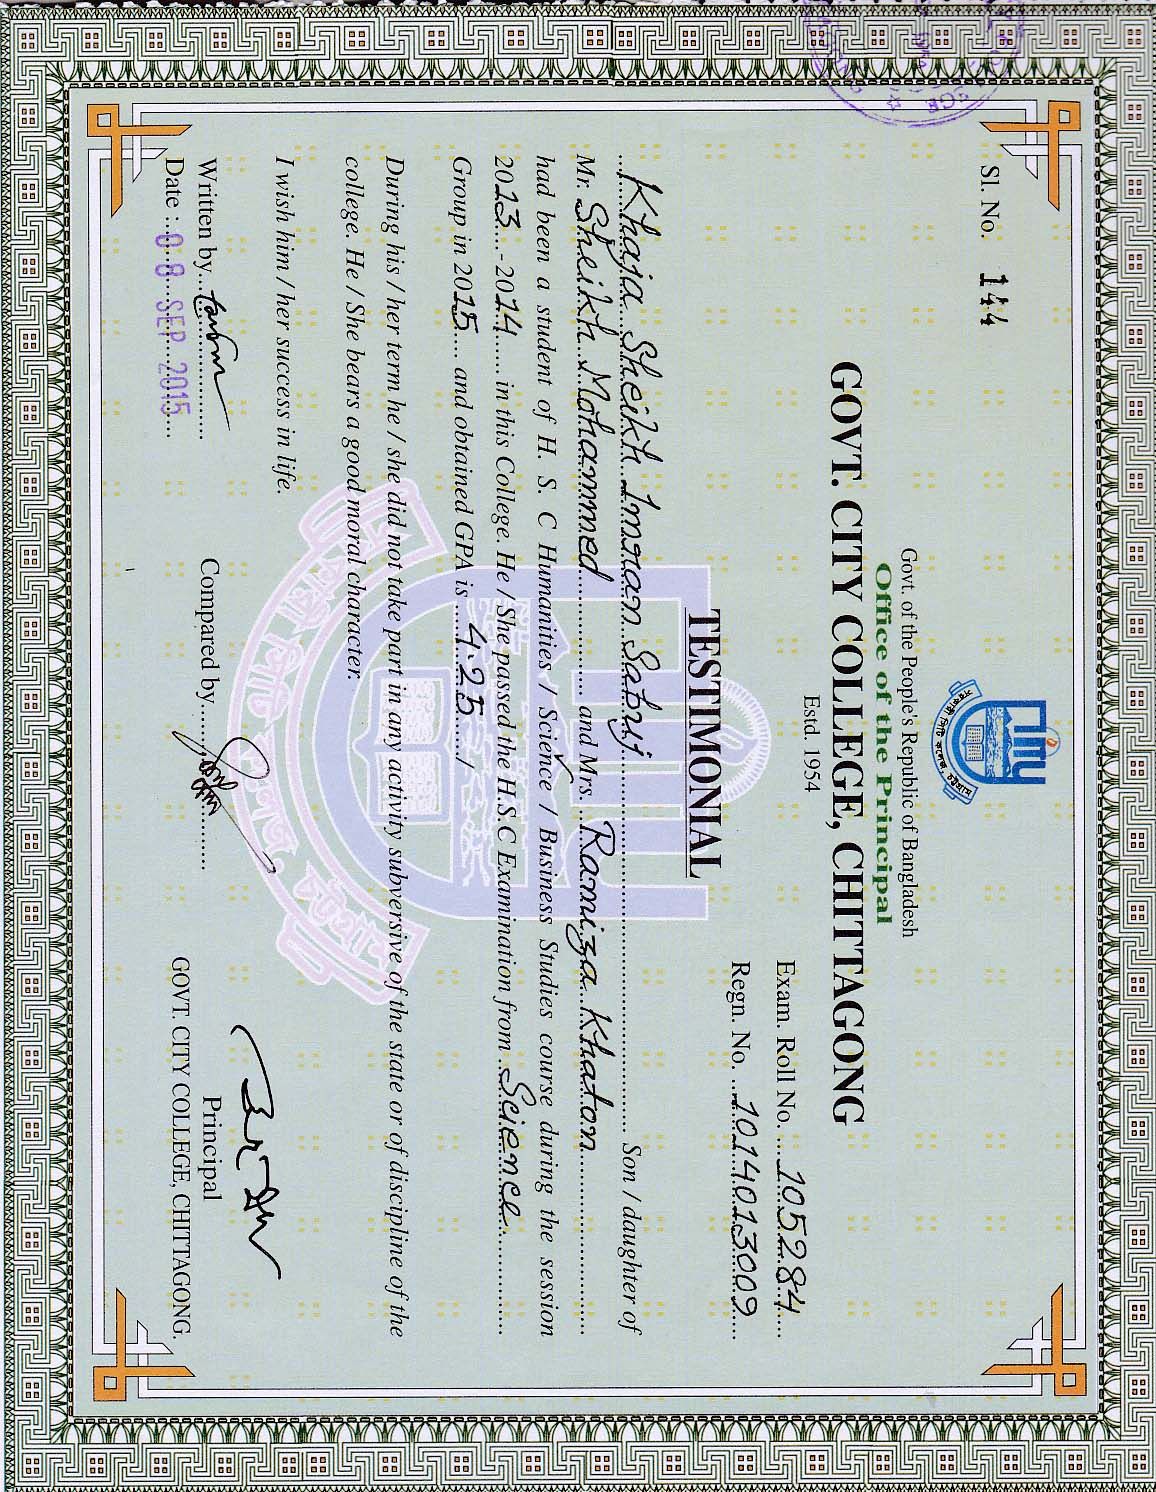 Sl. No. 144
সরকারী সিটি কলেজ, চট্টগ্রাম
Govt. of the People's Republic of Bangladesh
Office of the Principal
GOVT. CITY COLLEGE, CHITTAGONG
Estd. 1954
Exam. Roll No. 105284
Regn. No. 1014013009
TESTIMONIAL
Khaja Sheikh Imran Sabuj Son / daughter of
Mr. Sheikh Mohammed and Mrs. Ramiza Khaton
had been a student of H. S. C Humanities / Science / Business Studies course during the session
2013-2014 in this College. He / She passed the H.S.C Examination from Science
Group in 2015 and obtained GPA is 4.25/
During his / her term he / she did not take part in any activity subversive of the state or of discipline of the
college. He / She bears a good moral character.
সরকারী সিটি কলেজ, চট্টগ্রাম
I wish him / her success in life.
Written by
Compared by
Principal
Date : 08 SEP 2015
GOVT. CITY COLLEGE, CHITTAGONG.